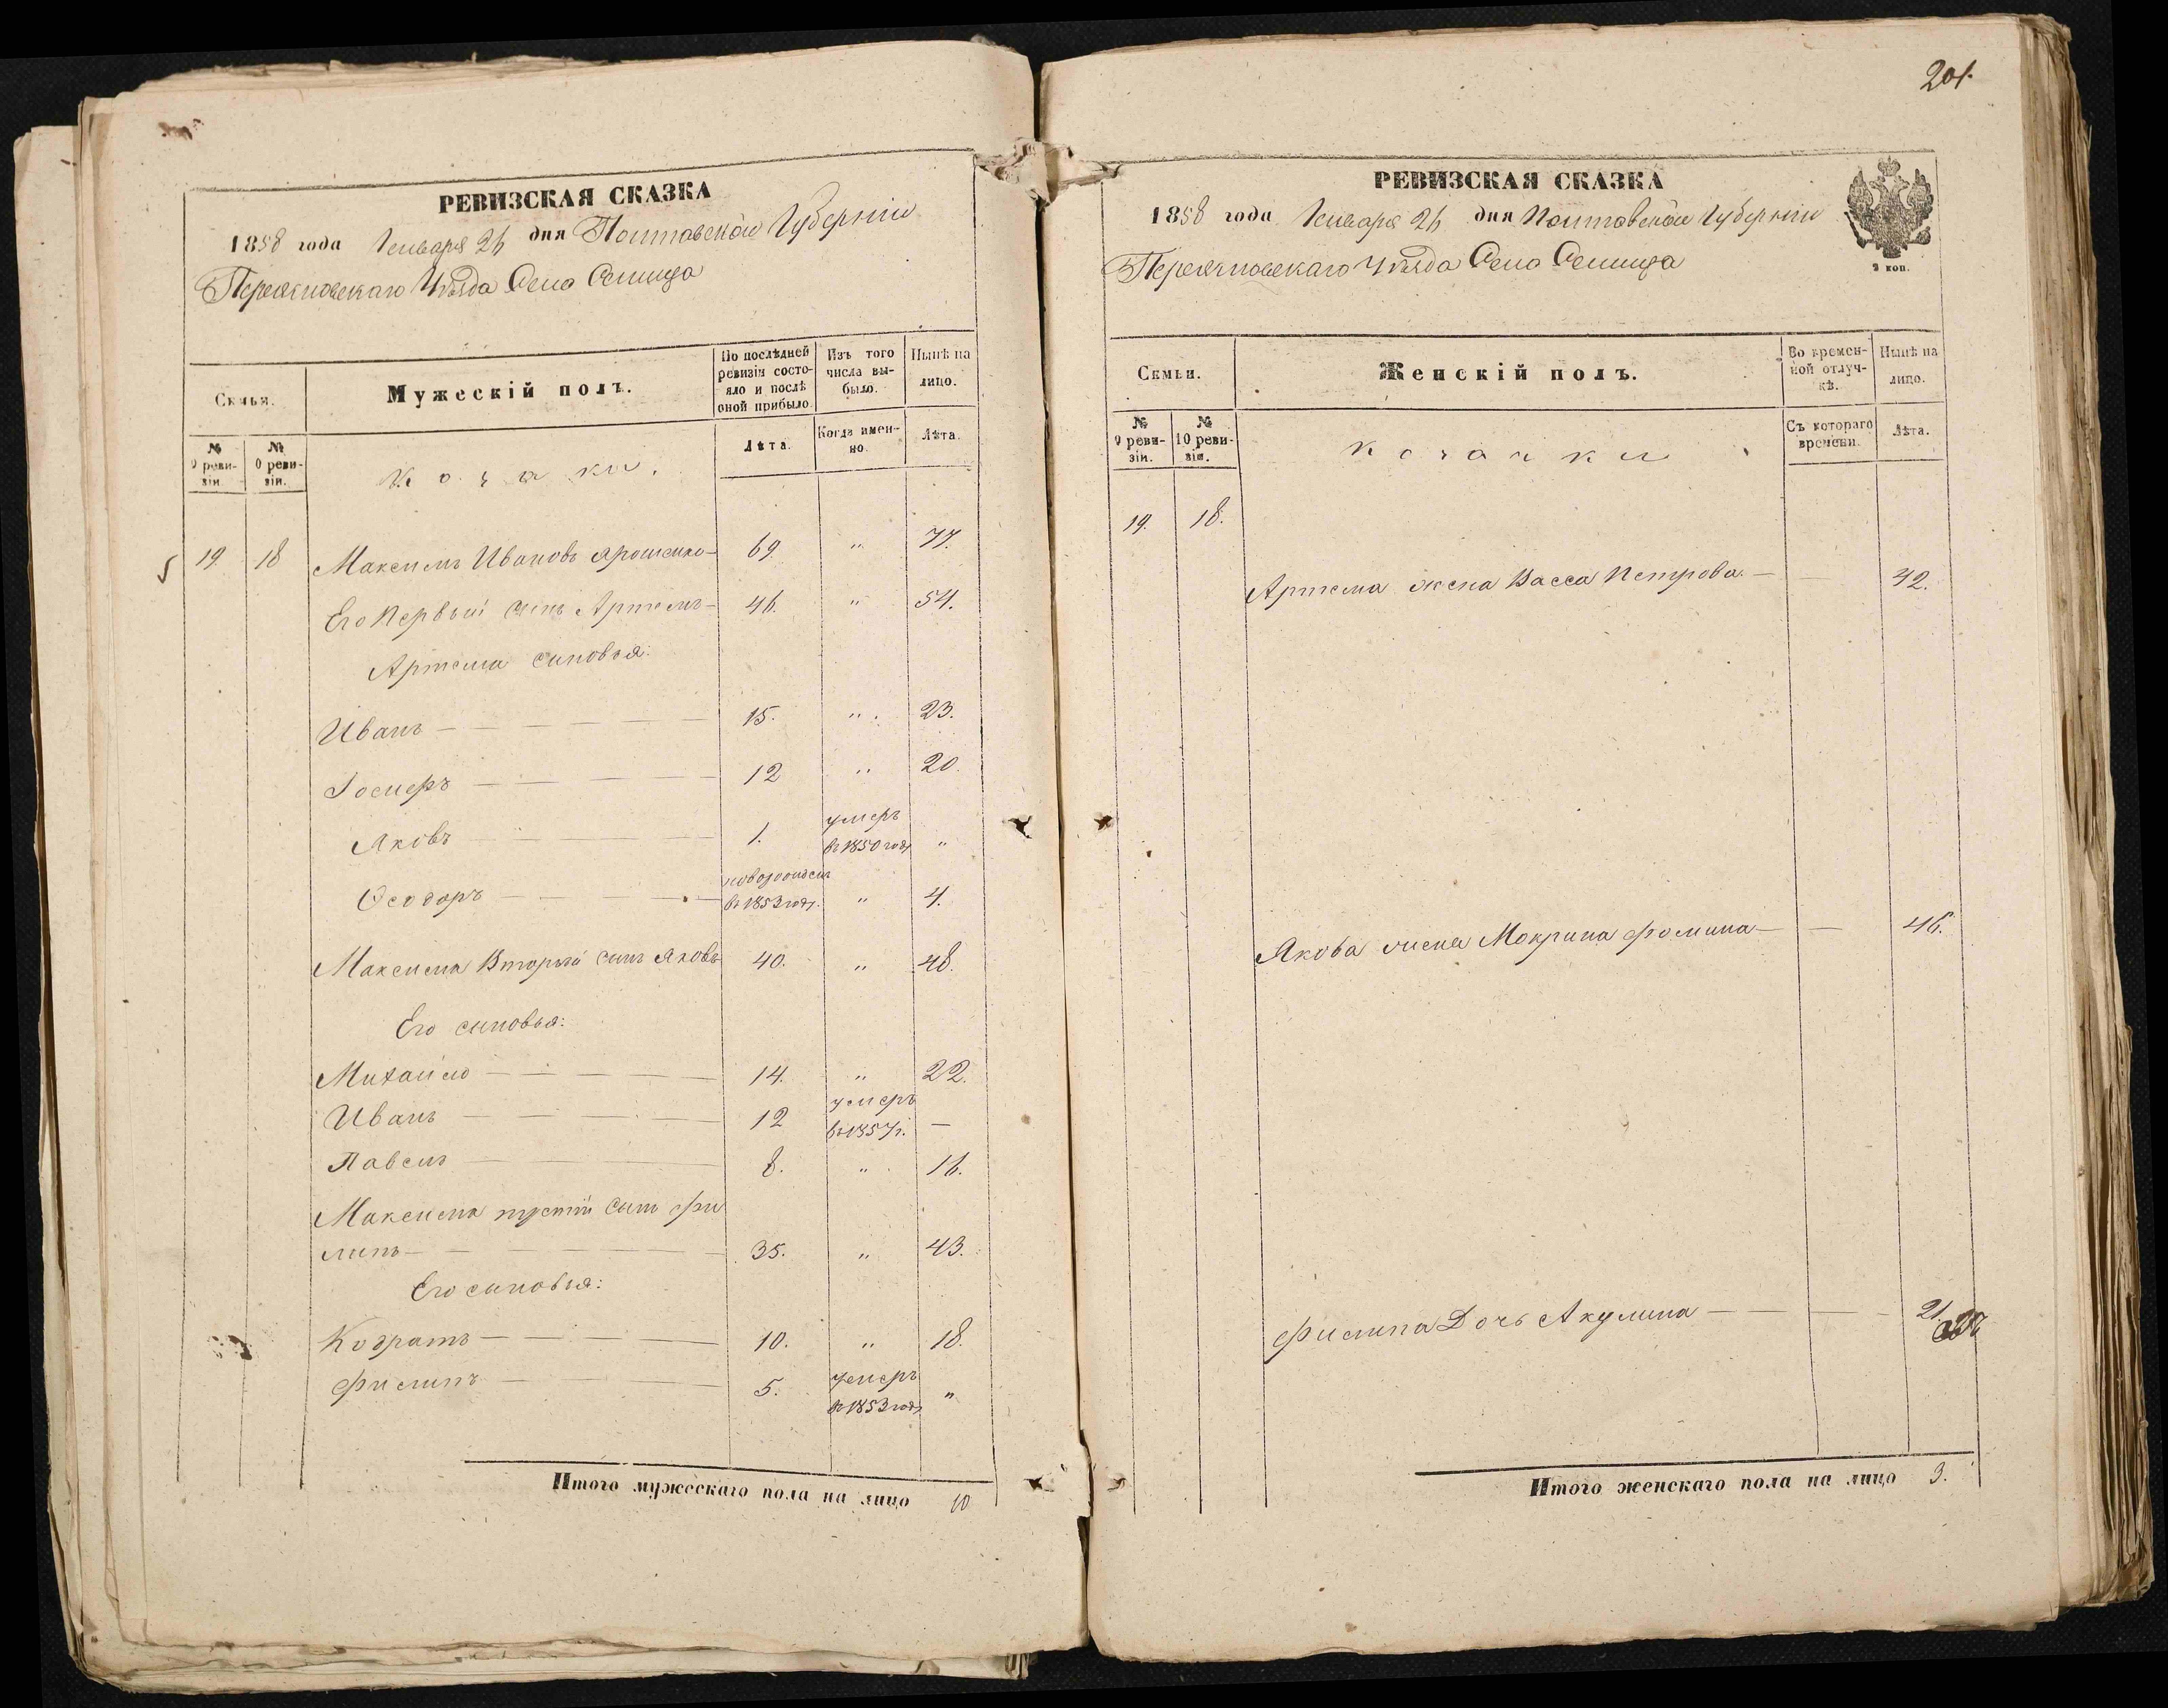 РЕВИЗСКАЯ СКАЗКА
1858 года Генваря 26 дня Полтавской Губерніи
Переяславскаго Уѣзда Село Селище
Семьи.
Мужескій полъ.
По послѣдней ревизіи состояло и послѣ оной прибыло.
Изъ того числа выбыло.
Нынѣ на лицо.
№ 9 ревизіи.
№ 10 ревизіи.
Козаки.
Лѣта.
Когда именно.
Лѣта.
19 18 Максимъ Ивановъ Ярошенко — 69. " 77.
Его Первый сынъ Артемъ — 46. " 54.
Артема сыновья:
Иванъ — 15. " 23.
Іосифъ — 12 " 20.
Яковъ — 1. умеръ в 1850 году "
Ѳеодоръ — новорожден в 1853 году. " 4.
Максима Вторый сынъ Яковъ 40. " 48.
Его сыновья:
Михайло — 14. " 22.
Иванъ — 12 умеръ в 1857 г. —
Павелъ — 8. " 16.
Максима третій сынъ Фи
липъ — 35. " 43.
Его сыновья:
Кодратъ — 10. " 18.
Филипъ — 5. умеръ в 1853 году "
Итого мужескаго пола на лицо 10
201.
РЕВИЗСКАЯ СКАЗКА
1858 года Генваря 26 дня Полтавской Губерніи
2 коп.
Переяславскаго Уѣзда Село Селище
Семьи.
Женскій полъ.
Во временной отлучкѣ.
Нынѣ на лицо.
№ 9 ревизіи.
№ 10 ревизіи.
Козачки
Съ котораго времени.
Лѣта.
19. 18.
Артема жена Васса Петрова. — — 42.
Якова жена Мокрина Фомина — — 46.
Филипа Дочь Акулина — — 21.
Итого женскаго пола на лицо 3.